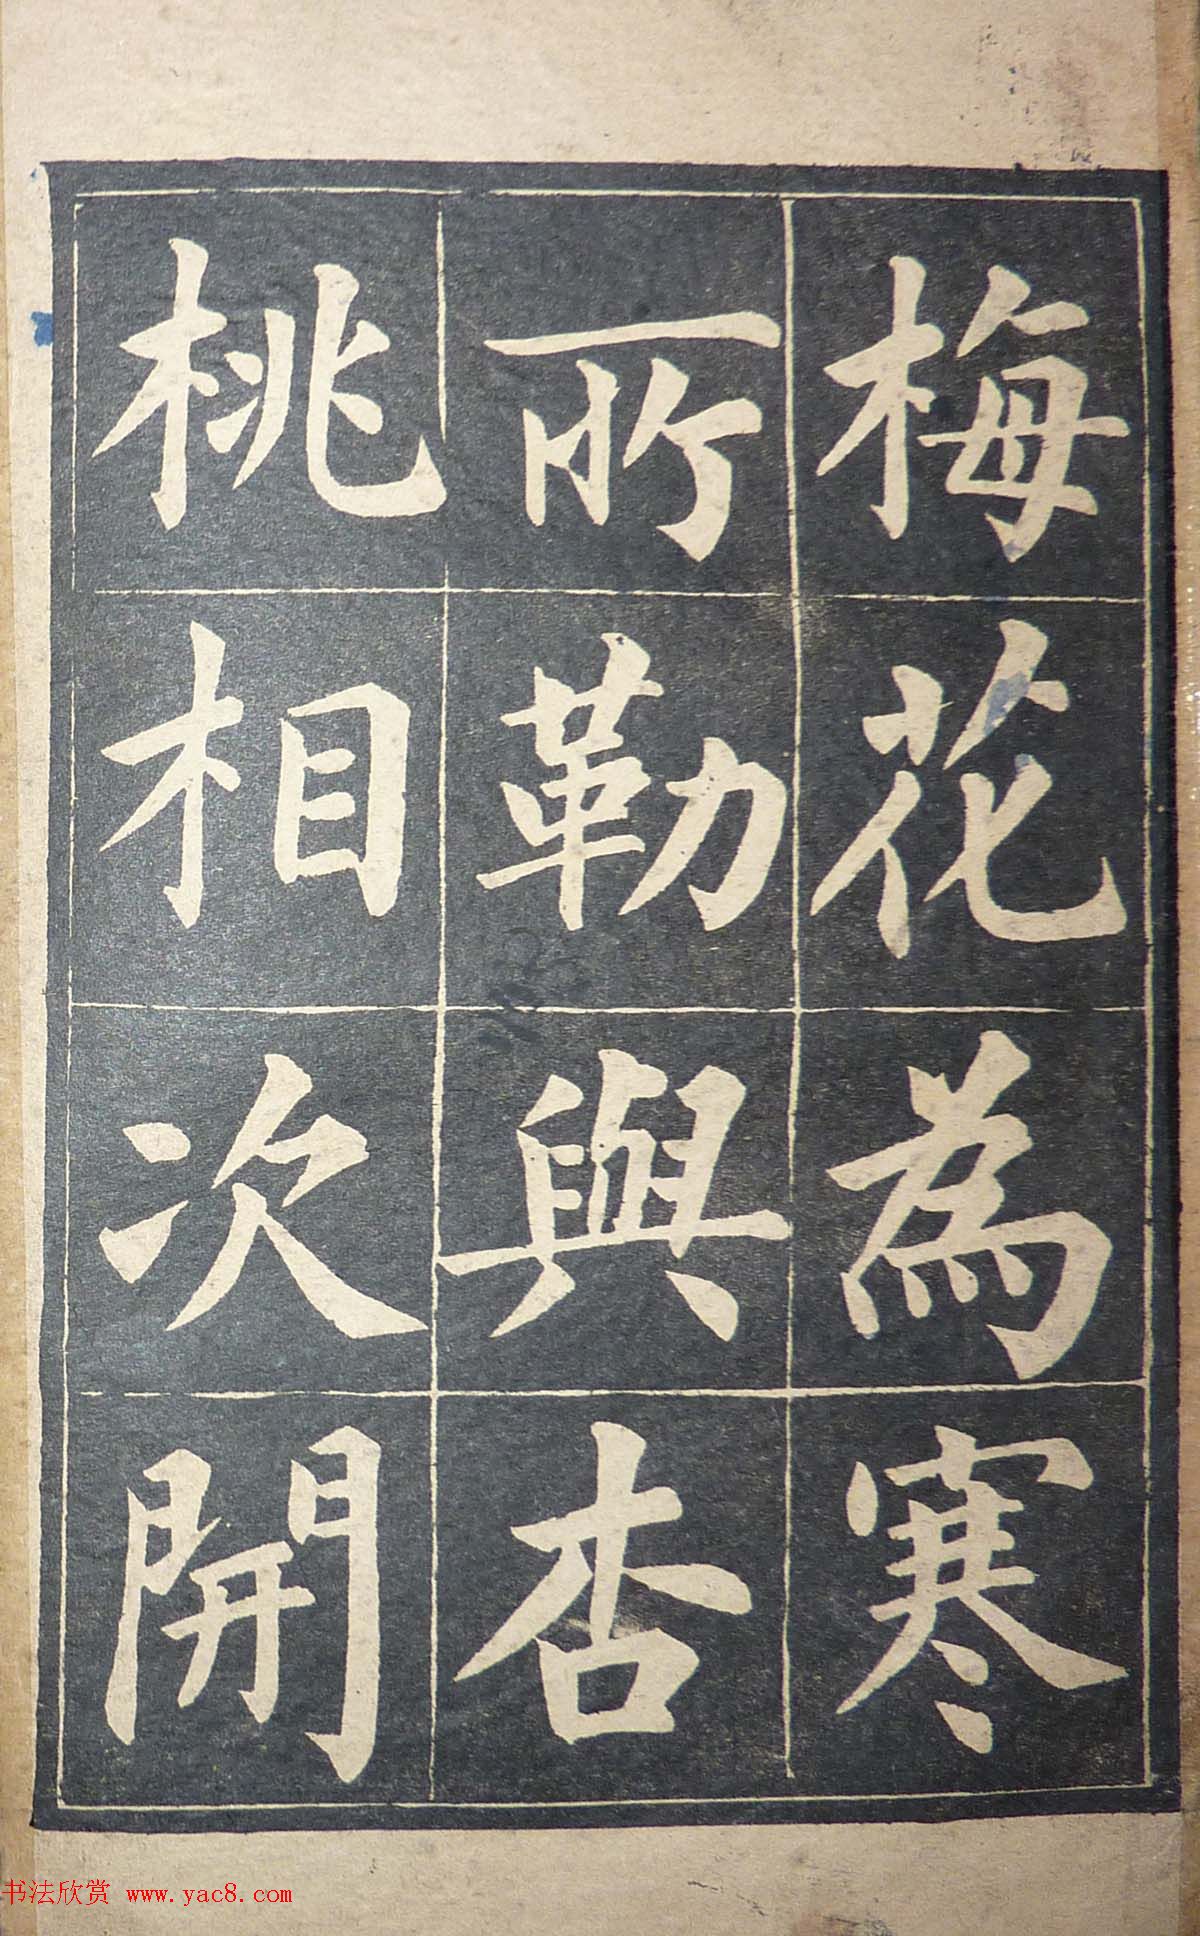 梅花為寒
所勒與杏
桃相次開
书法欣赏 www.yac8.com